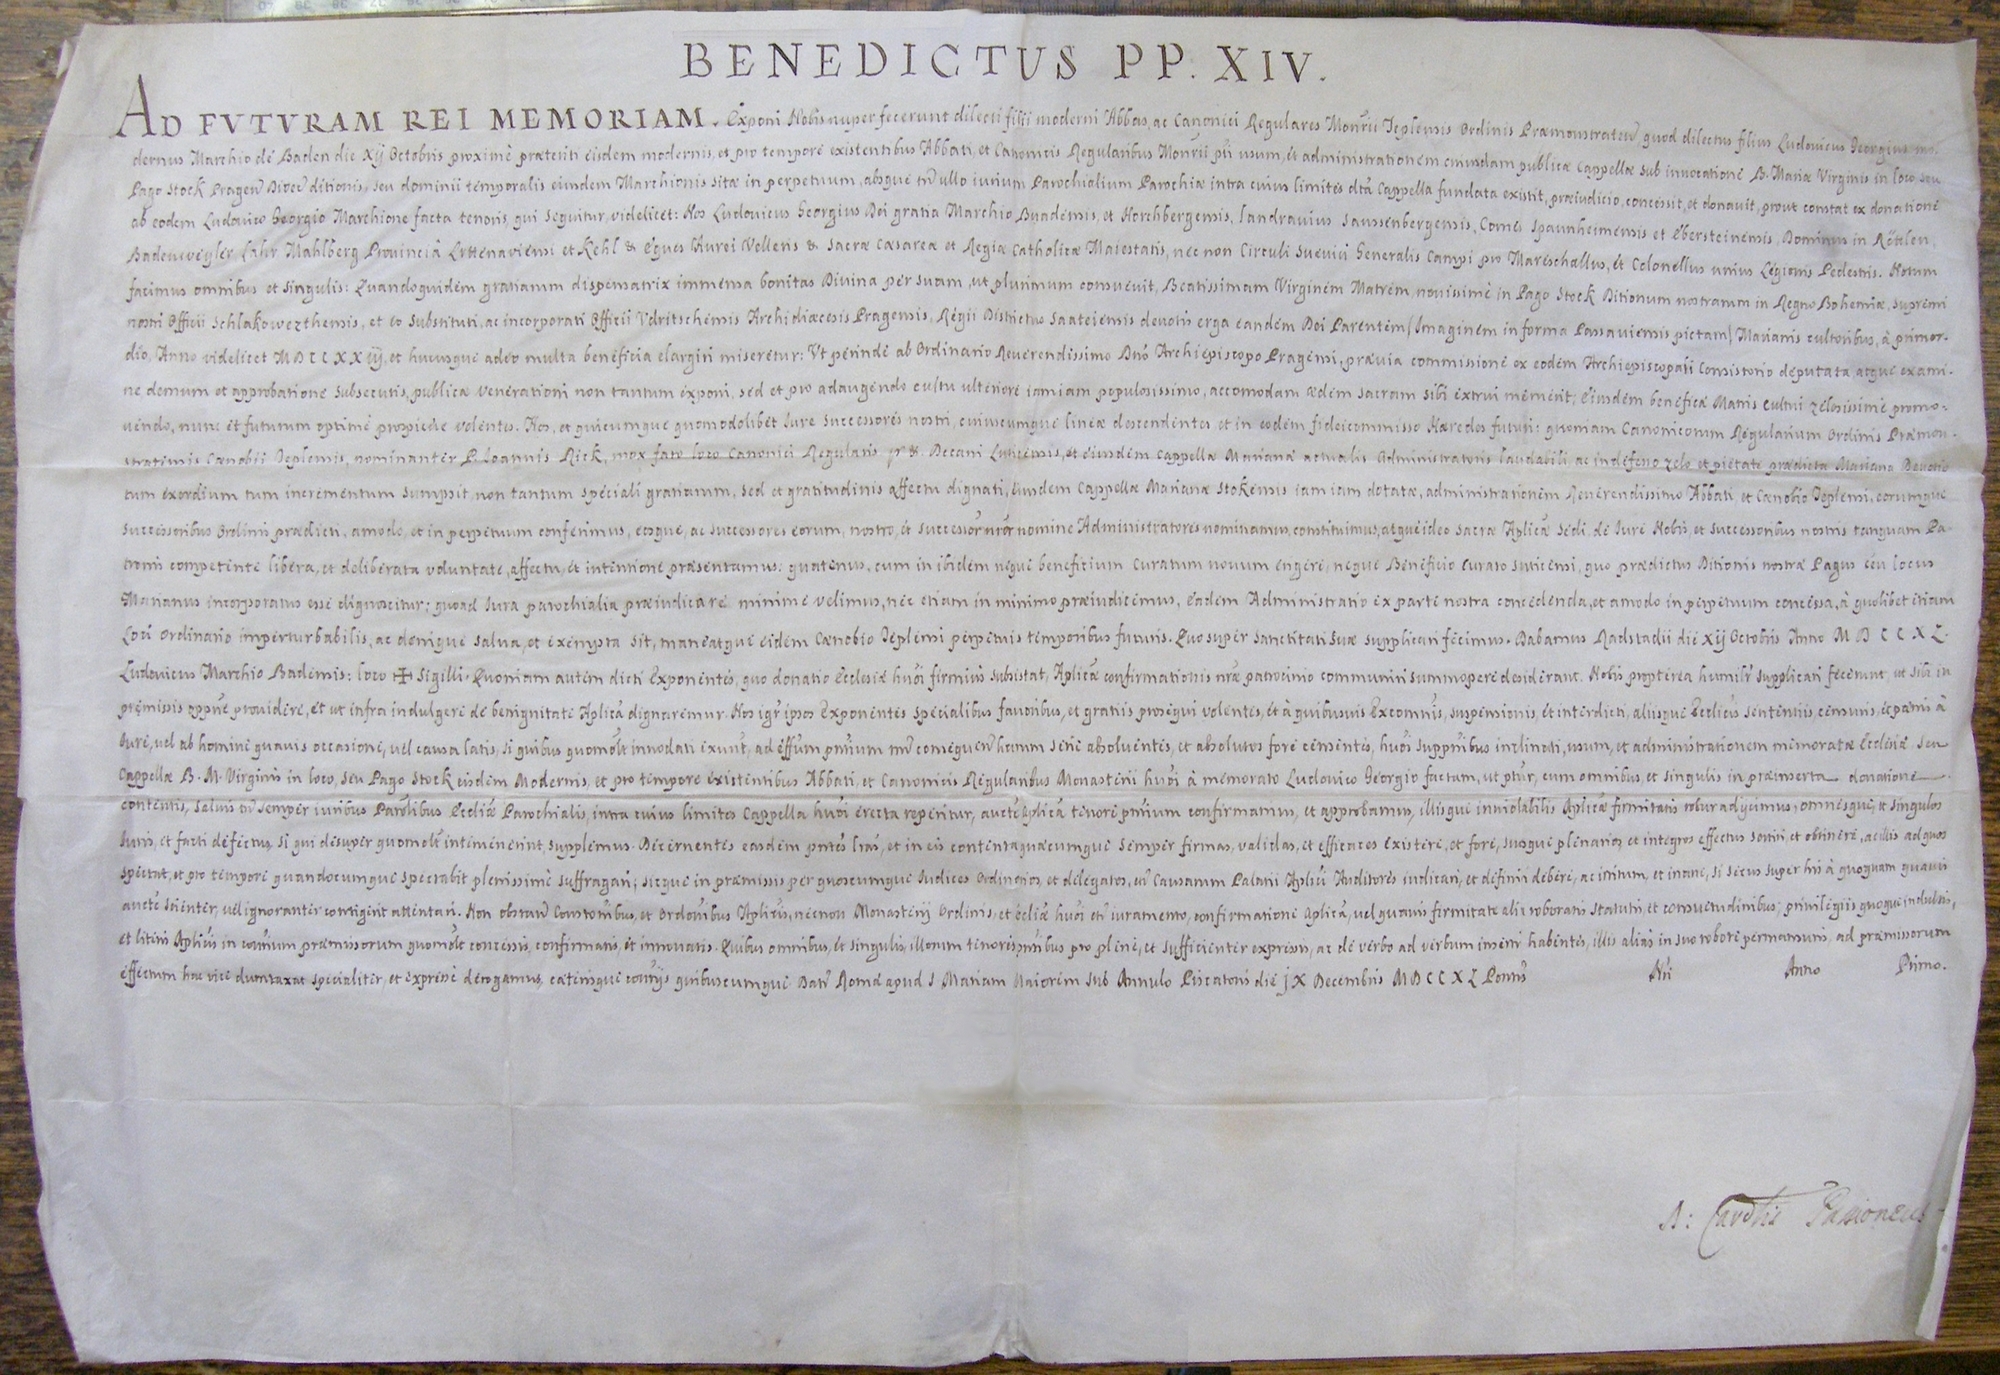 BENEDICTUS PP. XIV.
AD FVTVRAM REI MEMORIAM. Exponi Nobis nuper fecerunt dilecti filii moderni Abbas, ac Canonici Regulares Monrii Teplensis Ordinis Præmonstraten quod dilectus filius Ludovicus Georgius mo-
dernus Marchio de Baden die Xij Octobris proximè præteriti eisdem modernis, et pro tempore existentibus Abbati, et Canonicis Regularibus Monrii pti usum, et administrationem cuiusdam publicæ Cappellæ sub invocatione B. Mariæ Virginis in loco seu
Pago Stock Pragen Dioec ditionis, seu dominii temporalis eiusdem Marchionis sitæ in perpetuum, absque tn ullo iurium Parochialium Parochiæ intra cuius limites dta Cappella fundata existit, præiudicio, concessit, et donavit, prout constat ex donatione
ab eodem Ludovico Georgio Marchione facta tenoris, qui sequitur, videlicet: Nos Ludovicus Georgius Dei gratia Marchio Buadensis, et Horchbergensis, Landravius Saussenbergensis, Comes Spaunheimensis et Ebersteinensis, Dominus in Rötteln,
Badenweyler Lahr Mahlberg Provincià Lrttenaviensi et Kehl & Eques Aurei Velleris & Sacræ Cæsareæ et Regiæ Catholicæ Maiestatis, nec non Circuli Suevici Generalis Campi pro Mareschallus, et Colonellus unius Legionis Pedestris. Notum
facimus omnibus et singulis: Quandoquidem gratiarum dispensatrix immensa bonitas Divina per suam, ut plurimum consuevit, Beatissimam Virginem Matrem, novissimè in Pago Stock Ditionum nostrarum in Regno Bohemiæ, supremi
nostri Officii Schlakowezthensis, et eo substituti, ac incorporati Officii Udritschensis Archidiæcesis Pragensis, Regii Districtus Saateiensis devotis erga eandem Dei Parentem (Imaginem in forma Passaviensis pictam) Marianis cultoribus, à primor-
dio, Anno videlicet MDCCXXiij, et huiusque adeo multa beneficia elargiri miseretur: Vt perinde ab Ordinario Reverendissimo Dno Archiepiscopo Pragensi, prævia commissione ex eodem Archiepiscopali Consistorio deputata, atque exami-
ne demum et approbatione subsecutis, publicæ venerationi non tantum exponi, sed et pro adaugendo cultu ulteriore iamiam populosissimo, accomodam ædem sacram sibi extrui meruerit; Eiusdem beneficæ Matris cultui zelosissime promo-
vendo, nunc et futurum optimè prospicere volentes. Nos, et quicumque quomodolibet Iure Successores nostri, cuiuscumque lineæ descendentes et in eodem fideicommisso Hæredes futuri: quoniam Canonicorum Regularium Ordinis Præmon-
stratensis Cænobii Teplensis, nominanter P. Ioannis Rick, mox facto loco Canonici Regularis Decani Luticensis, et eiusdem Cappellæ Marianæ actualis Administratoris laudabili, ac indefeno zelo et pietate prædicta Mariana Devotio
tum exordium tum incrementum sumpsit, non tantum speciali gratiarum, sed et gratitudinis affectu dignati, Eiusdem Cappellæ Marianæ Stokensis iam iam dotatæ, administrationem Reverendissimo Abbati, et Canobio Teplensi, eorumque
successoribus Ordinis prædicti, amodo, et in perpetuum conferimus, eosque, ac successores eorum, nostro, et successor nror nomine Administratores nominamus, constituimus, atque ideo Sacræ Aplicæ Sedi, de Iure Nobis, et successoribus nostris tanquam Pa-
tronis competente libera, et deliberata voluntate, affectu, et intentione præsentamus: quatenus, cum in ibidem neque beneficium Curatum novum erigere, neque Beneficio Curato Luticensi, quo prædictus Ditionis nostræ Pagus seu locus
Marianus incorporatus esse dignoscitur; quoad Iura parochialia præiudicare minime velimus, nec etiam in minimo præiudicemus, Eadem Administratio ex parte nostra concedenda, et amodo in perpetuum concessa, à quolibet etiam
Loci Ordinario imperturbabilis, ac denique salva, et exempta sit, maneatque eidem Cænobio Teplensi perpetuis temporibus futuris. Quo super Sanctitati Suæ supplicari fecimus. Dabamus Radstadii die Xij Octobris Anno MDCCXL.
Ludovicus Marchio Badensis: loco ✠ Sigilli. Quoniam autem dicti Exponentes, quo donatio Ecclesiæ huoi firmius subsistat, Aplicæ confirmationis nræ patrocinio communiri summopere desiderant. Nobis propterea humilr supplicari fecerunt, ut sibi in
præmissis opprne providere, et ut infra indulgere de benignitate Aplica dignaremur. Nos igr ipsos Exponentes specialibus favoribus, et gratiis prosequi volentes, et à quibusuis Excomnis, suspensionis, et interdicti, aliisque Ecclicis sententiis, censuris, et pænis à
iure, vel ab homine quavis occasione, vel causa latis, si quibus quomolt innodati exunt, ad effum pntium tm consequen harum serie absolventes, et absolutos fore censentes, huoi suppnibus inclinati, usum, et administrationem memoratæ Ecclesiæ seu
Cappellæ B. M. Virginis in loco, seu Pago Stock eisdem Modernis, et pro tempore existentibus Abbati, et Canonicis Regularibus Monasterii huoi à memorato Ludovico Georgio factam, ut pfur, cum omnibus et singulis in præinserta donatione
contentis, salvis tn semper iuribus Parolibus Ecclicæ Parochialis, intra cuius limites Cappella huoi erecta reperitur, aucte Aplica tenore pntium confirmamus, et approbamus, illisque inviolabilis Aplicæ firmitatis robur adijcimus, omnesque, et singulos
iuris, et facti defectus, si qui desuper quomolt intervenerint, supplemus. Decernentes easdem pntes lras, et in eis contenta quæcumque semper firmas, validas, et efficaces existere, et fore, suosque plenarios et integros effectus sortiri, et obtinere, ac illis ad quos
spectat, et pro tempore quandocumque spectabit plenissime suffragari; sicque in præmissis per quoscumque Iudices Ordinarios, et delegatos, et Causarum Palatii Aplici Auditores iudicari, et definiri debere, ac irritum, et inane, si secus super his à quoquam quavis
aucte scienter, vel ignoranter contigerit attentari. Non obstan Constonibus, et Ordonibus Aplicis, necnon Monasterij Ordinis, et eccliæ huoi et iuramento, confirmatione Aplica, vel quavis firmitate alia roboratis statutis, et consuetudinibus, privilegiis quoque indultis,
et literis Aplicis in contrium præmissorum quomolt concessis, confirmatis, et innovatis. Quibus omnibus, et singulis, illorum tenores pntibus pro plene, et sufficienter expressis, ac de verbo ad verbum insertis habentes, illis alias in suo robore permansuris, ad præmissorum
effectum hac vice dumtaxat specialiter, et expresse derogamus, cæterisque contriis quibuscumque Dat Romæ apud S Mariam Maiorem sub Annulo Piscatoris die jX Decembris MDCCXL Pontus Nri Anno Primo.
D: Cardlis Passioneus